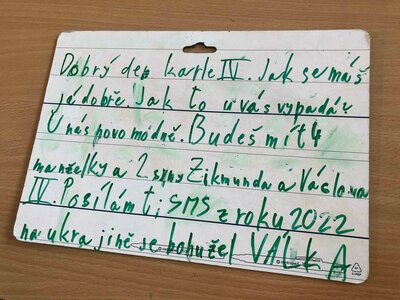 Dobrý den karle IV. Jak se máš
já dobře. Jak to u vás vypadá?
U nás povo módně. Budeš mít 4
manželky a 2 syny Zikmunda a Václava
IV. Posílám ti SMS z roku 2022
na ukrajině se bohužel VÁLKA